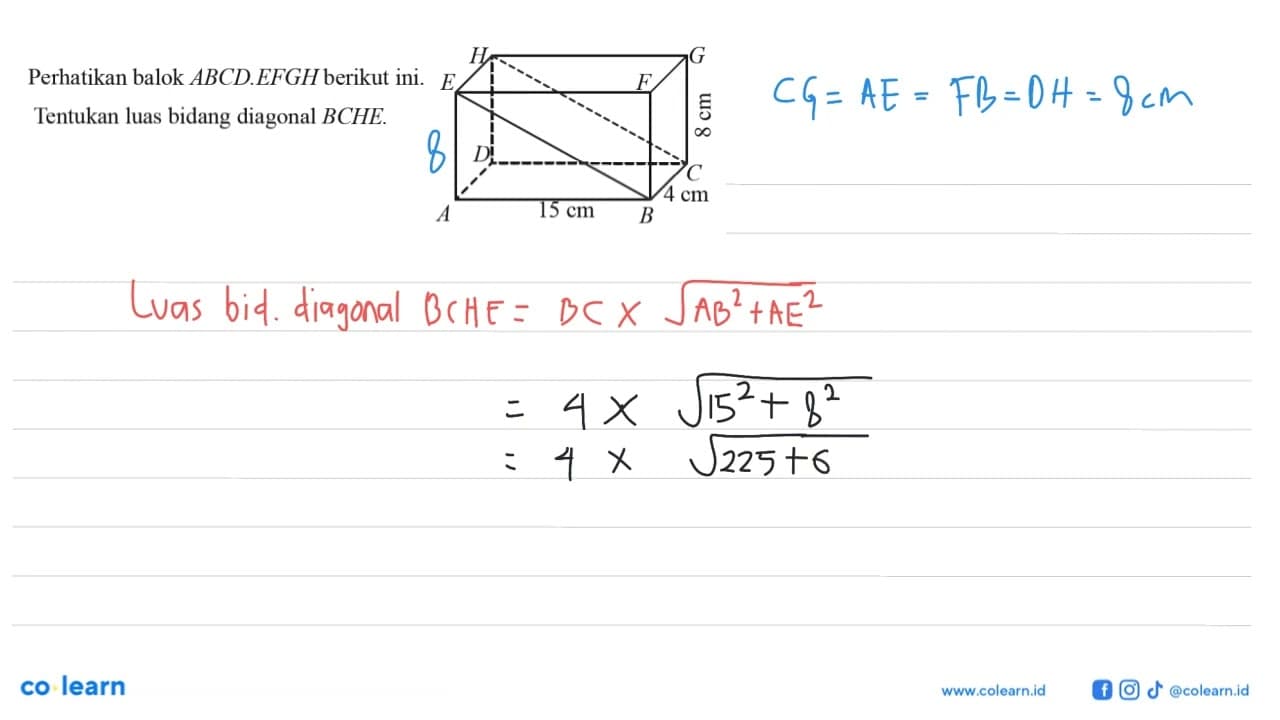 Perhatikan balok ABCD.EFGH berikut ini.
Tentukan luas bidang diagonal BCHE.
H
G
E
F
8 cm
8
D
C
4 cm
A
15 cm
B
CG = AE = FB = DH = 8 cm
Luas bid. diagonal BCHE = BC × √AB²+AE²
= 4 × √15²+8²
= 4 × √225+6
co learn
www.colearn.id
@colearn.id